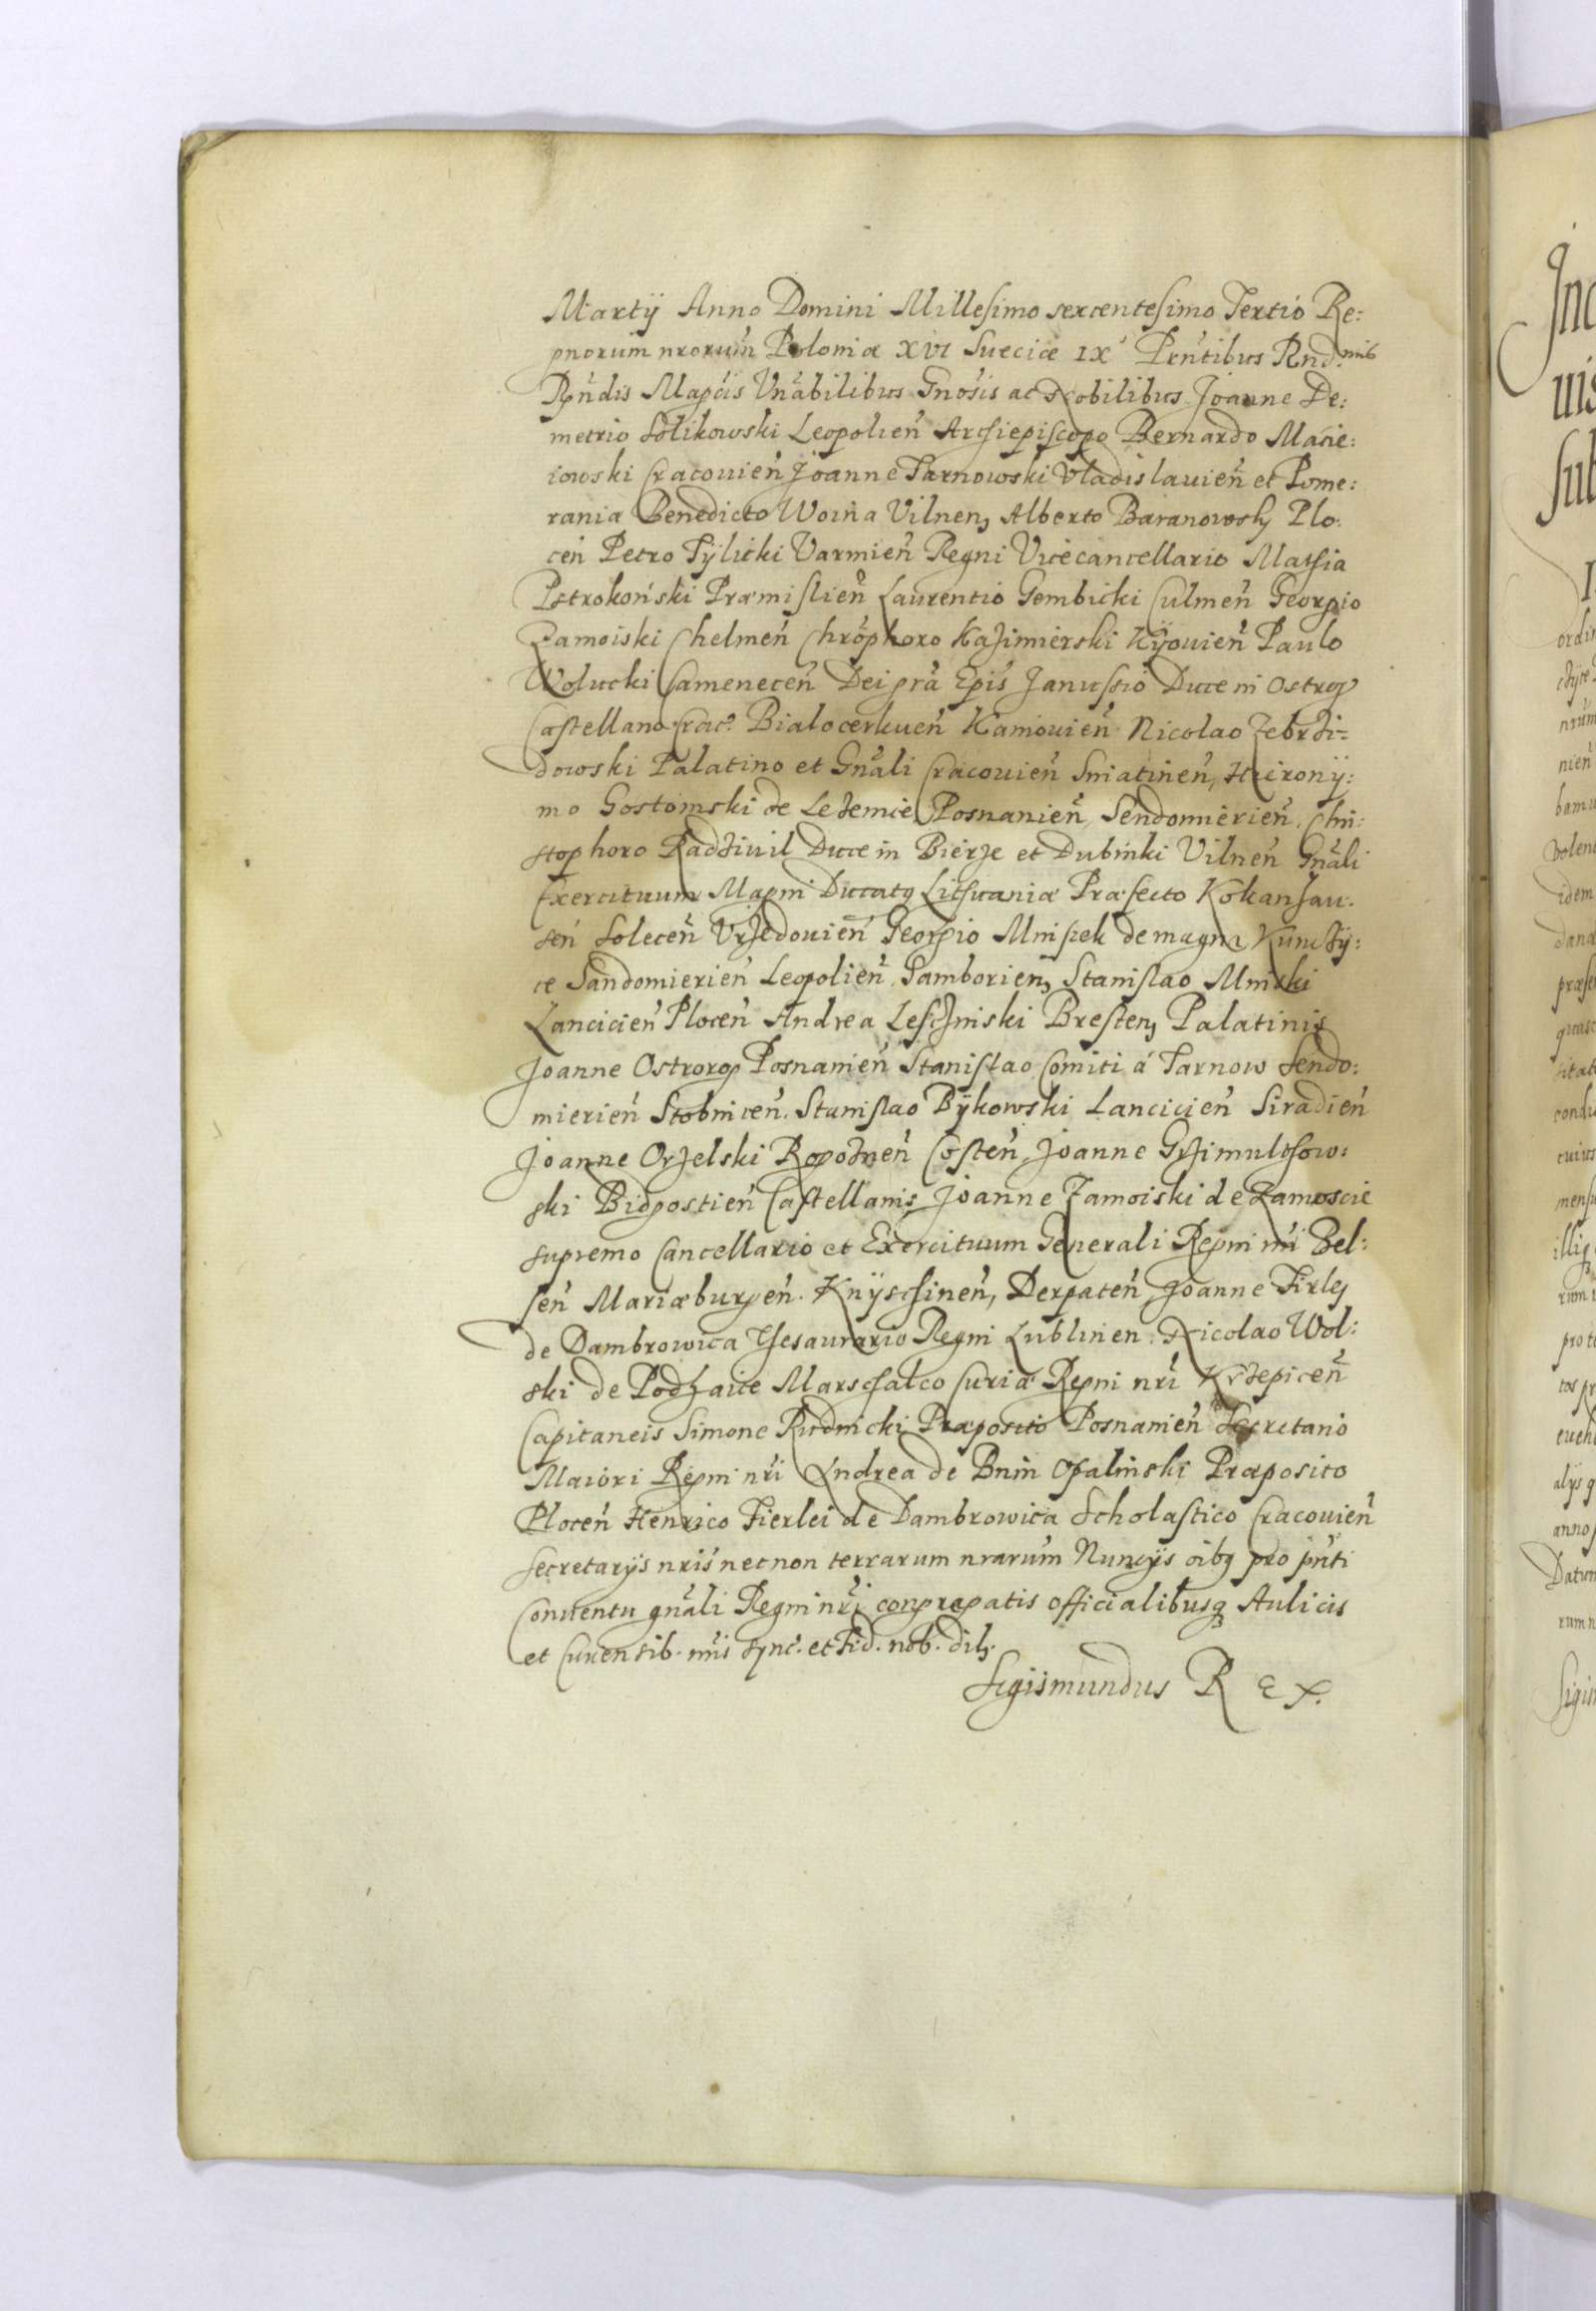 Martÿ Anno Domini Millesimo sexcentesimo Tertio Re:
gnorum nrorum Poloniæ XVI Sueciæ IX Prntibus Rnd.mis
Rñdis Magcis Vnabilibus Gnosis ac Nobilibus Joanne De:
metrio Solikowski Leopolien Archiepiscopo Bernardo Macie:
iowski Cracouien Joanne Tarnowski Vladislauien et Pome:
rania Benedicto Woina Vilnen, Alberto Baranowsky Plo:
cen Petro Tÿlicki Varmien Regni Vicecancellario Mathia
Pstrokoński Præmislien Laurentio Gembicki Culmen Georgio
Zamoiski Chelmen Chrophoro Kazimierski Kÿouien Paulo
Wolucki Camenecen Dei gra Epis Janussio Duce in Ostrog
Castellano Crac. Bialocerkuen Kaniouien Nicolao Zebrzi=
dowski Palatino et Gnali Cracouien Sniatinen, Hieronÿ:
mo Gostomski de Lezenice Posnanien, Sendomierien, Chri:
stophoro Radziuil Duce in Bierze et Dubinki Vilnen Gnali
Exercituum Magni Ducatq Lithuaniæ Præfecto Kokanhau:
sen Solecen Vrzedouien Georgio Mniszek de magna Kunczÿ:
ce Sandomierien Leopolien Samborien, Stanislao Minski
Lancicien Plocen Andrea Lesczinski Bresten, Palatinis
Joanne Ostrorog Posnanien Stanislao Comiti á Tarnow Sendo:
mierien Stobnicen. Stanislao Bÿkowski Lancicien Siradien
Joanne Orzelski Rogoznen Costen, Joanne Grzimulthow:
ski Bidgostien Castellanis Joanne Zamoiski de Zamoscie
supremo Cancellario et Exercituum Generali Regni nri Bel:
sen Mariæburgen. Knÿschinen, Derpaten Joanne Firley
de Dambrowica Thesaurario Regni Lublinen. Nicolao Wol:
ski de Podhaice Marschalco Curiæ Regni nri Krzepicen
Capitaneis Simone Rudnicki Præposito Posnanien Secretario
Maiori Regni nri Andrea de Bnin Opalinski Præposito
Plocen Henrico Fierlei de Dambrowica Scholastico Cracouien
Secretarÿs nris necnon terrarum nrarum Nuncÿs oibq pro pnti
Conuentu gnali Regni nri congregatis officialibusq Aulicis
et Curiensib. nris sync. et Fid. nob. dil.
Sigismundus REX.